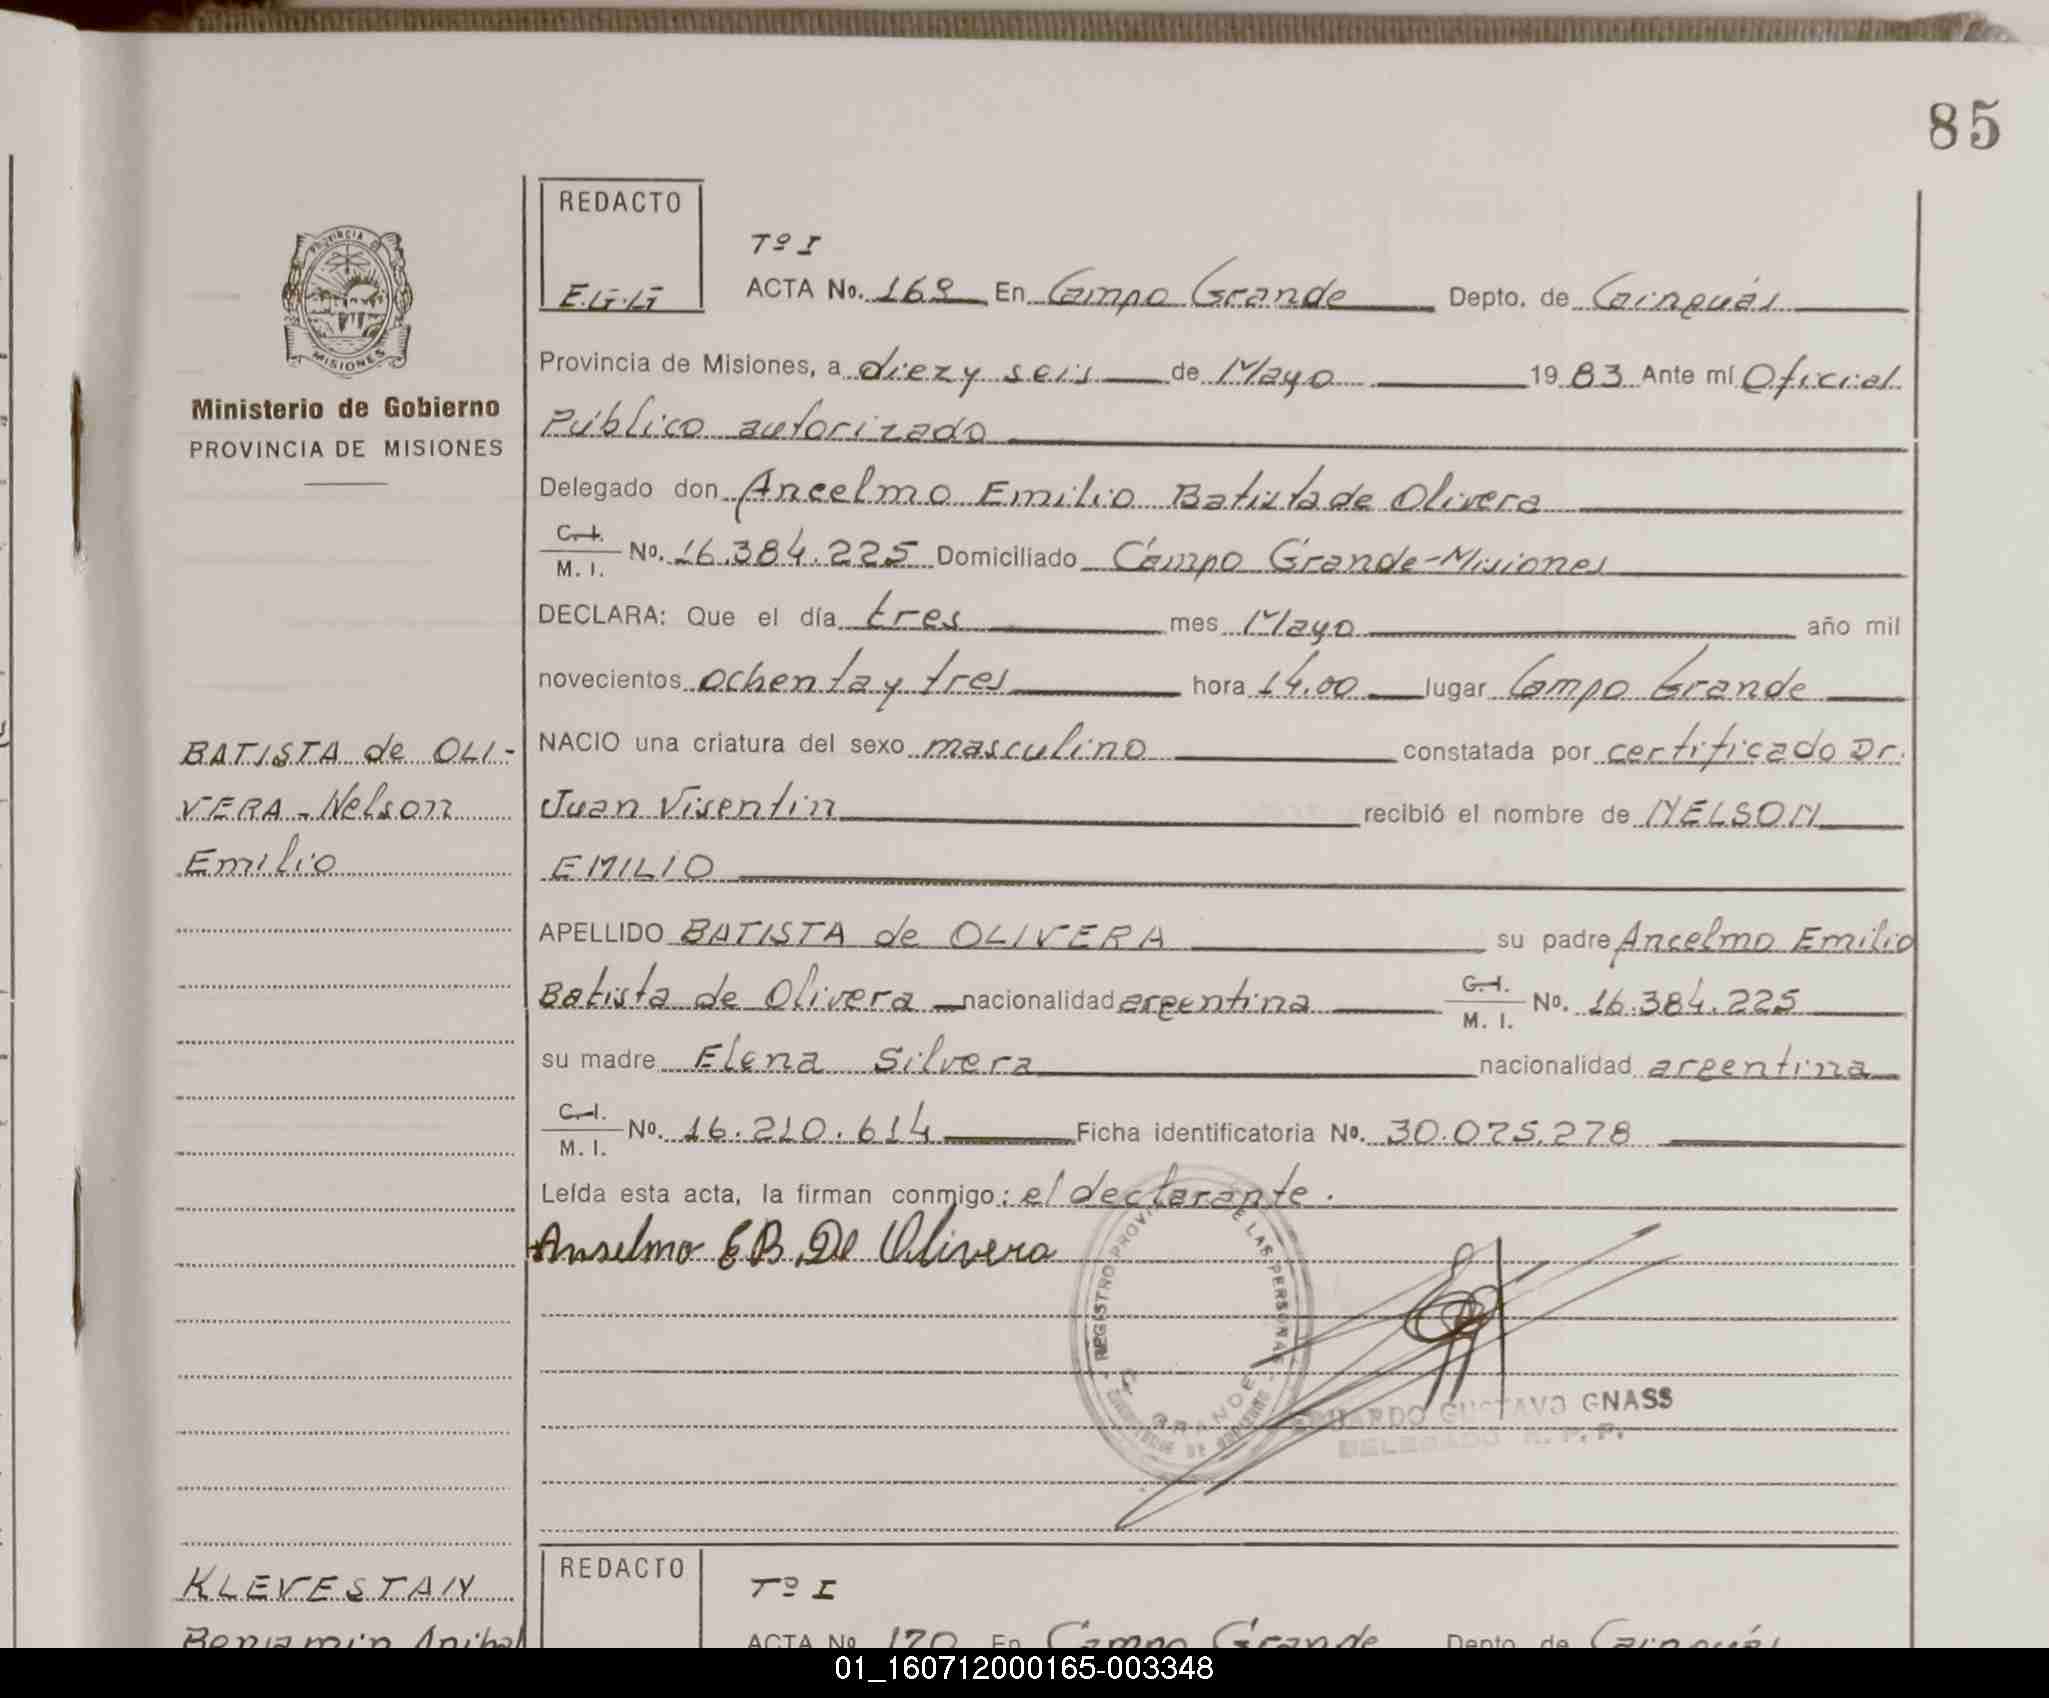 85
REDACTO
E.G.G
Tº I
ACTA No. 169 En Campo Grande Depto. de Cainguás
PROVINCIA DE
MISIONES
Ministerio de Gobierno
PROVINCIA DE MISIONES
Provincia de Misiones, a diez y seis de Mayo 1983 Ante mí Oficial
Público autorizado
Delegado don Ancelmo Emilio Batista de Olivera
C.I. M. I. No. 16.384.225 Domiciliado Campo Grande-Misiones
DECLARA: Que el día tres mes Mayo año mil
novecientos ochenta y tres hora 14.00 lugar Campo Grande
BATISTA de OLI-
VERA - Nelson
Emilio
NACIO una criatura del sexo masculino constatada por certificado Dr.
Juan Visentin recibió el nombre de NELSON
EMILIO
APELLIDO BATISTA de OLIVERA su padre Ancelmo Emilio
Batista de Olivera nacionalidad argentina C.I. M. I. No. 16.384.225
su madre Elena Silvera nacionalidad argentina
C.I. M. I. No. 16.210.614 Ficha identificatoria No. 30.075.278
Leída esta acta, la firman conmigo: el declarante.
Anselmo E B De Olivera
REGISTRO PROVI DE LAS PERSONAS
C. GRANDE
EDUARDO GUSTAVO GNASS
DELEGADO R. P. P.
KLEVESTAN
Benjamin Anibal
REDACTO
Tº I
ACTA No 170 En Campo Grande Depto de Cainguás
01_160712000165-003348